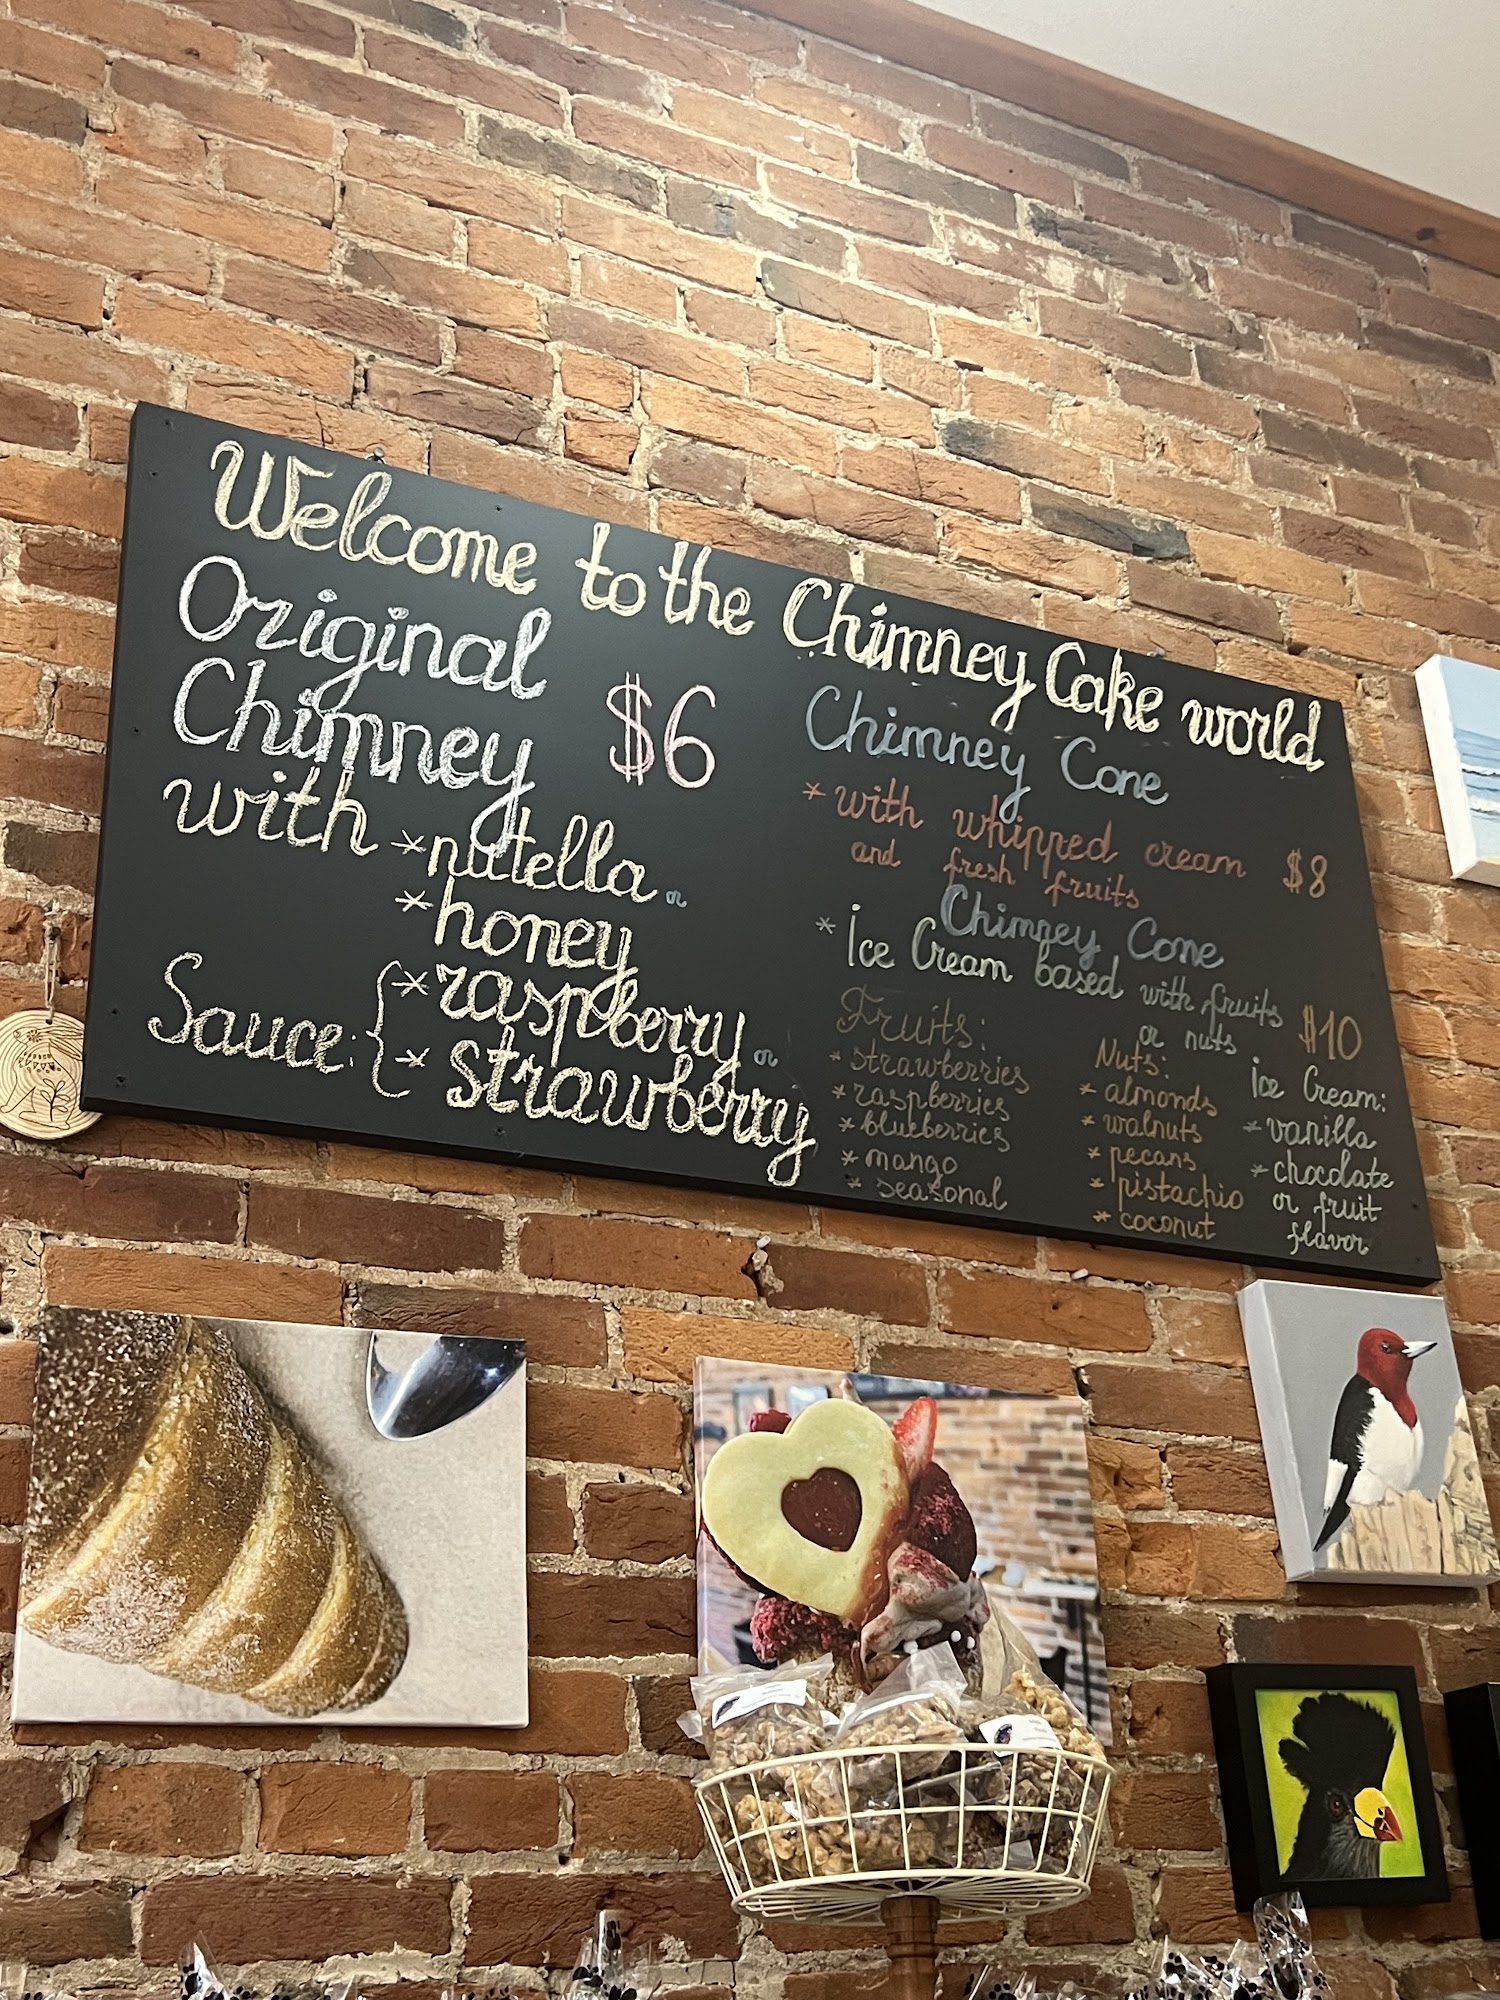 Welcome to the Chimney Cake world
Original
Chimney
$6
with
* nutella or
* honey
Sauce: {
* raspberry or
* strawberry
Chimney Cone
* with whipped cream
and fresh fruits
$8
Chimney Cone
* Ice Cream based with fruits
or nuts
$10
Fruits:
* strawberries
* raspberries
* blueberries
* mango
* seasonal
Nuts:
* almonds
* walnuts
* pecans
* pistachio
* coconut
Ice Cream:
* vanilla
* chocolate
or fruit
flavor